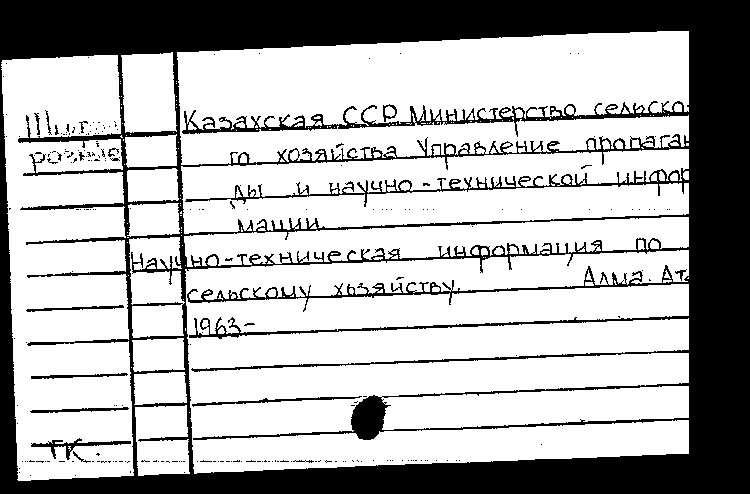 Казахская ССР Министерство сельско-
го хозяйства Управление пропаган
ды и научно-технической инфор
мации.
Научно-техническая информация по
сельскому хозяйству. Алма-Ата
1963-
ГК.